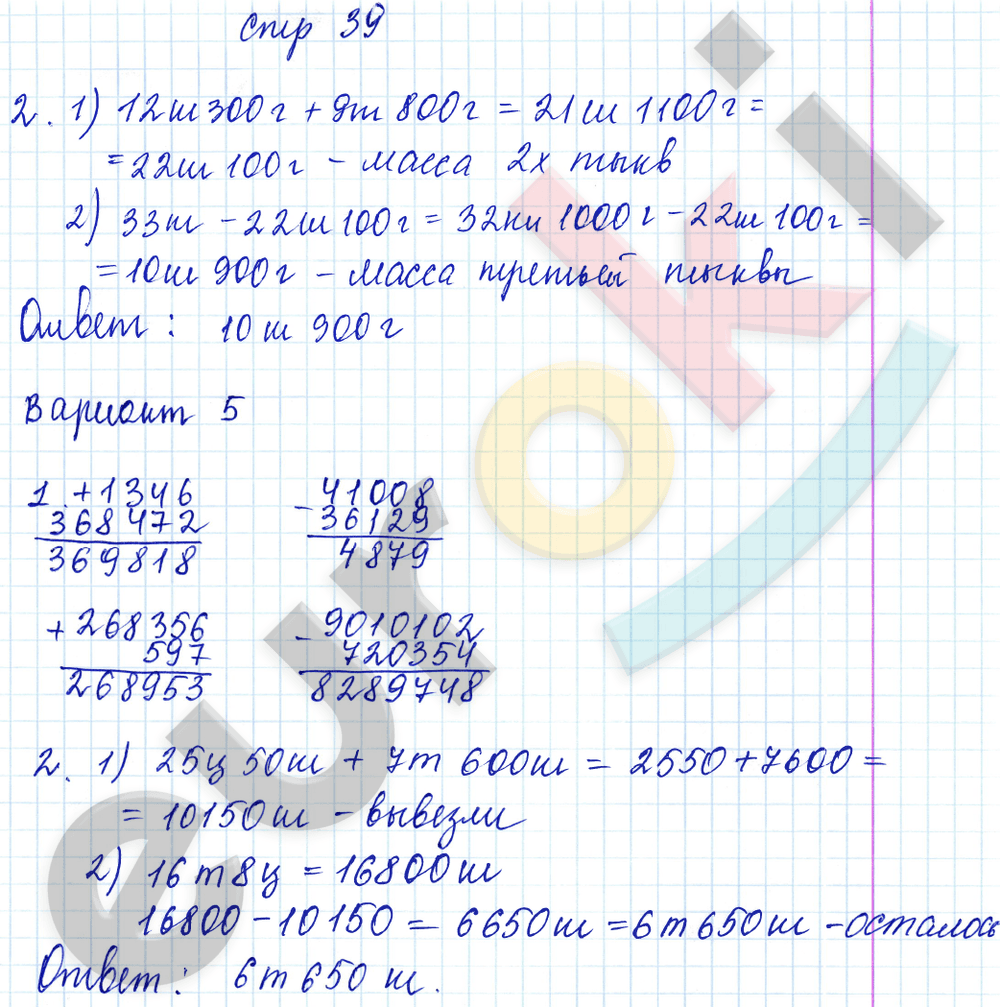 стр 39
2. 1) 12кг 300г + 9кг 800г = 21кг 1100г =
= 22кг 100г - масса 2х тыкв
2) 33кг - 22кг 100г = 32кг 1000г - 22кг 100г =
= 10кг 900г - масса третьей тыквы
Ответ: 10кг 900г
Вариант 5
1. + 1346 - 41008
368472 36129
369818 4879
+ 268356 - 9010102
597 720354
268953 8289748
2. 1) 25ц 50кг + 7т 600кг = 2550 + 7600 =
= 10150кг - вывезли
2) 16т 8ц = 16800кг
16800 - 10150 = 6650кг = 6т 650кг - осталось
Ответ: 6т 650 кг.
euroki